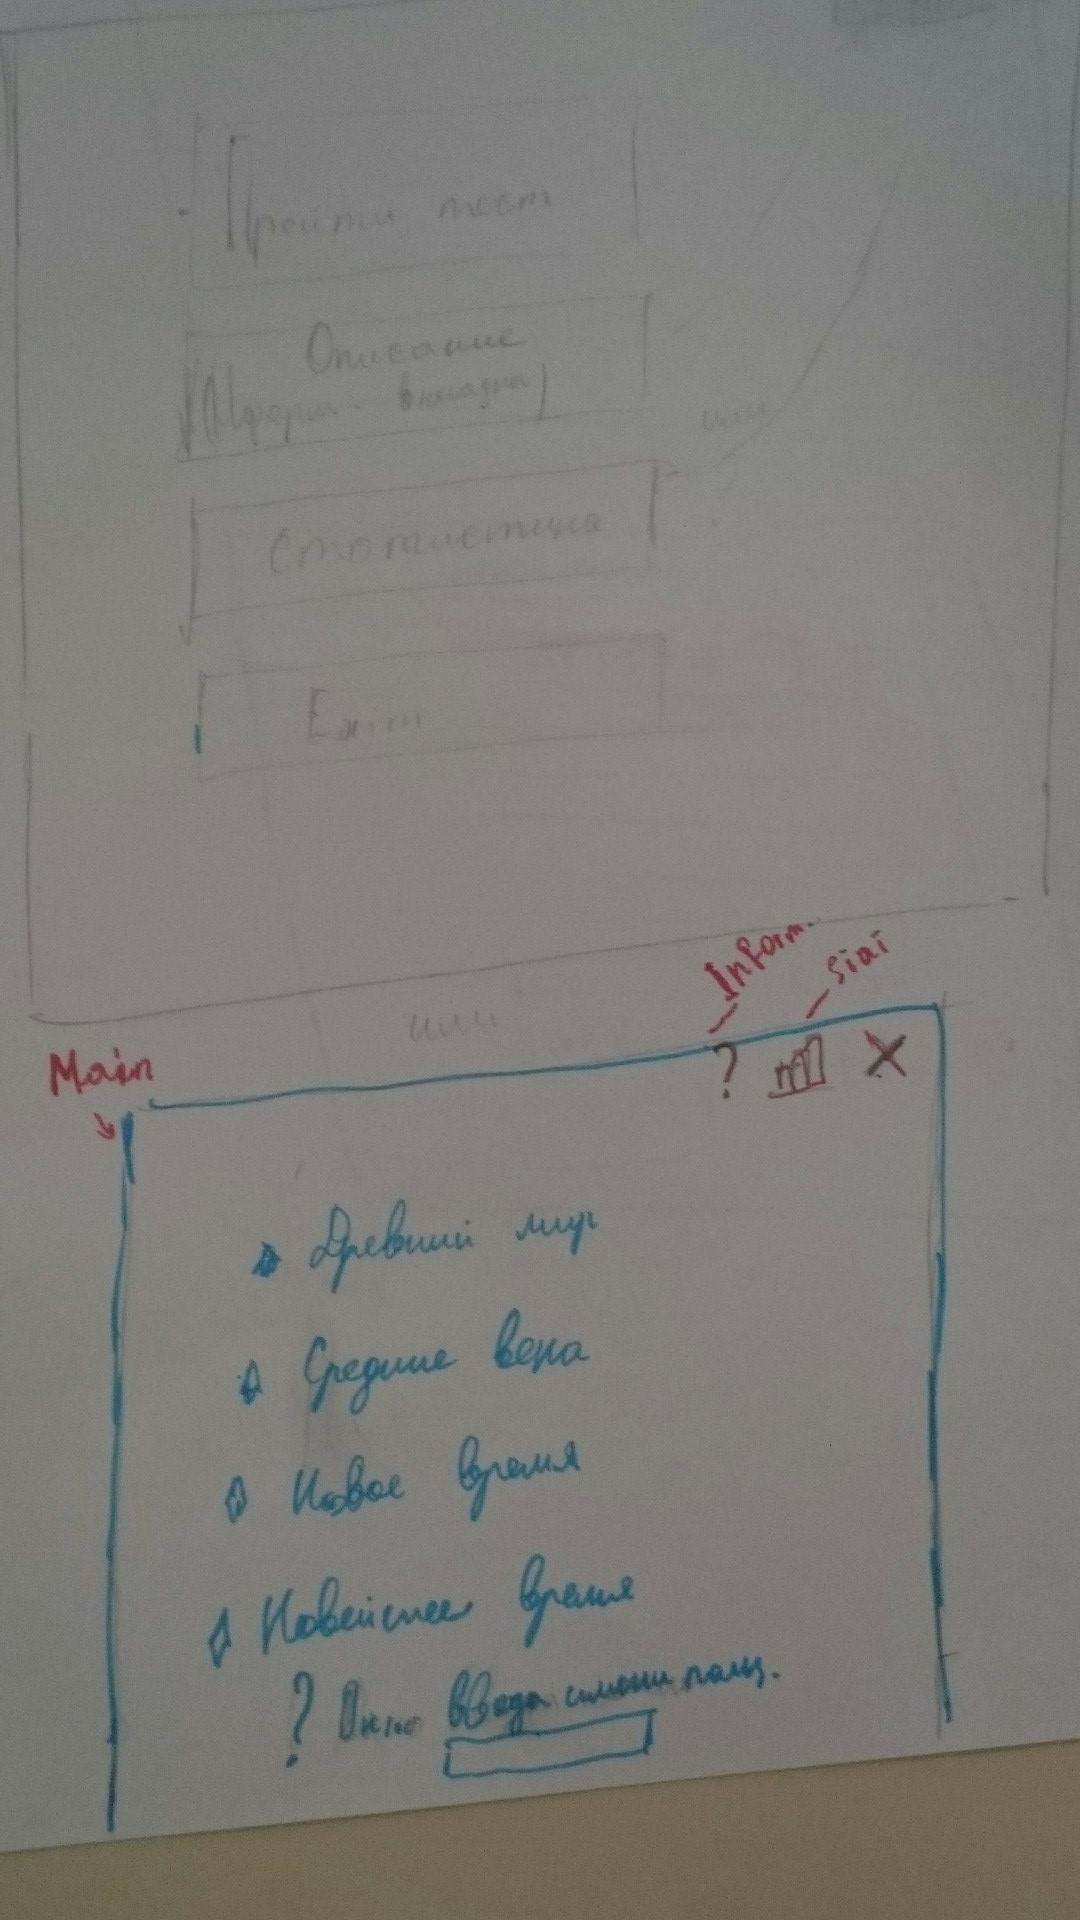 Пройти тест
Описание
(Информ. вкладка)
или
Статистика
Exit
или
Inform.
Stat
Main
?
X
Древний мир
Средние века
Новое время
Новейшее время
? Окно ввода имени польз.